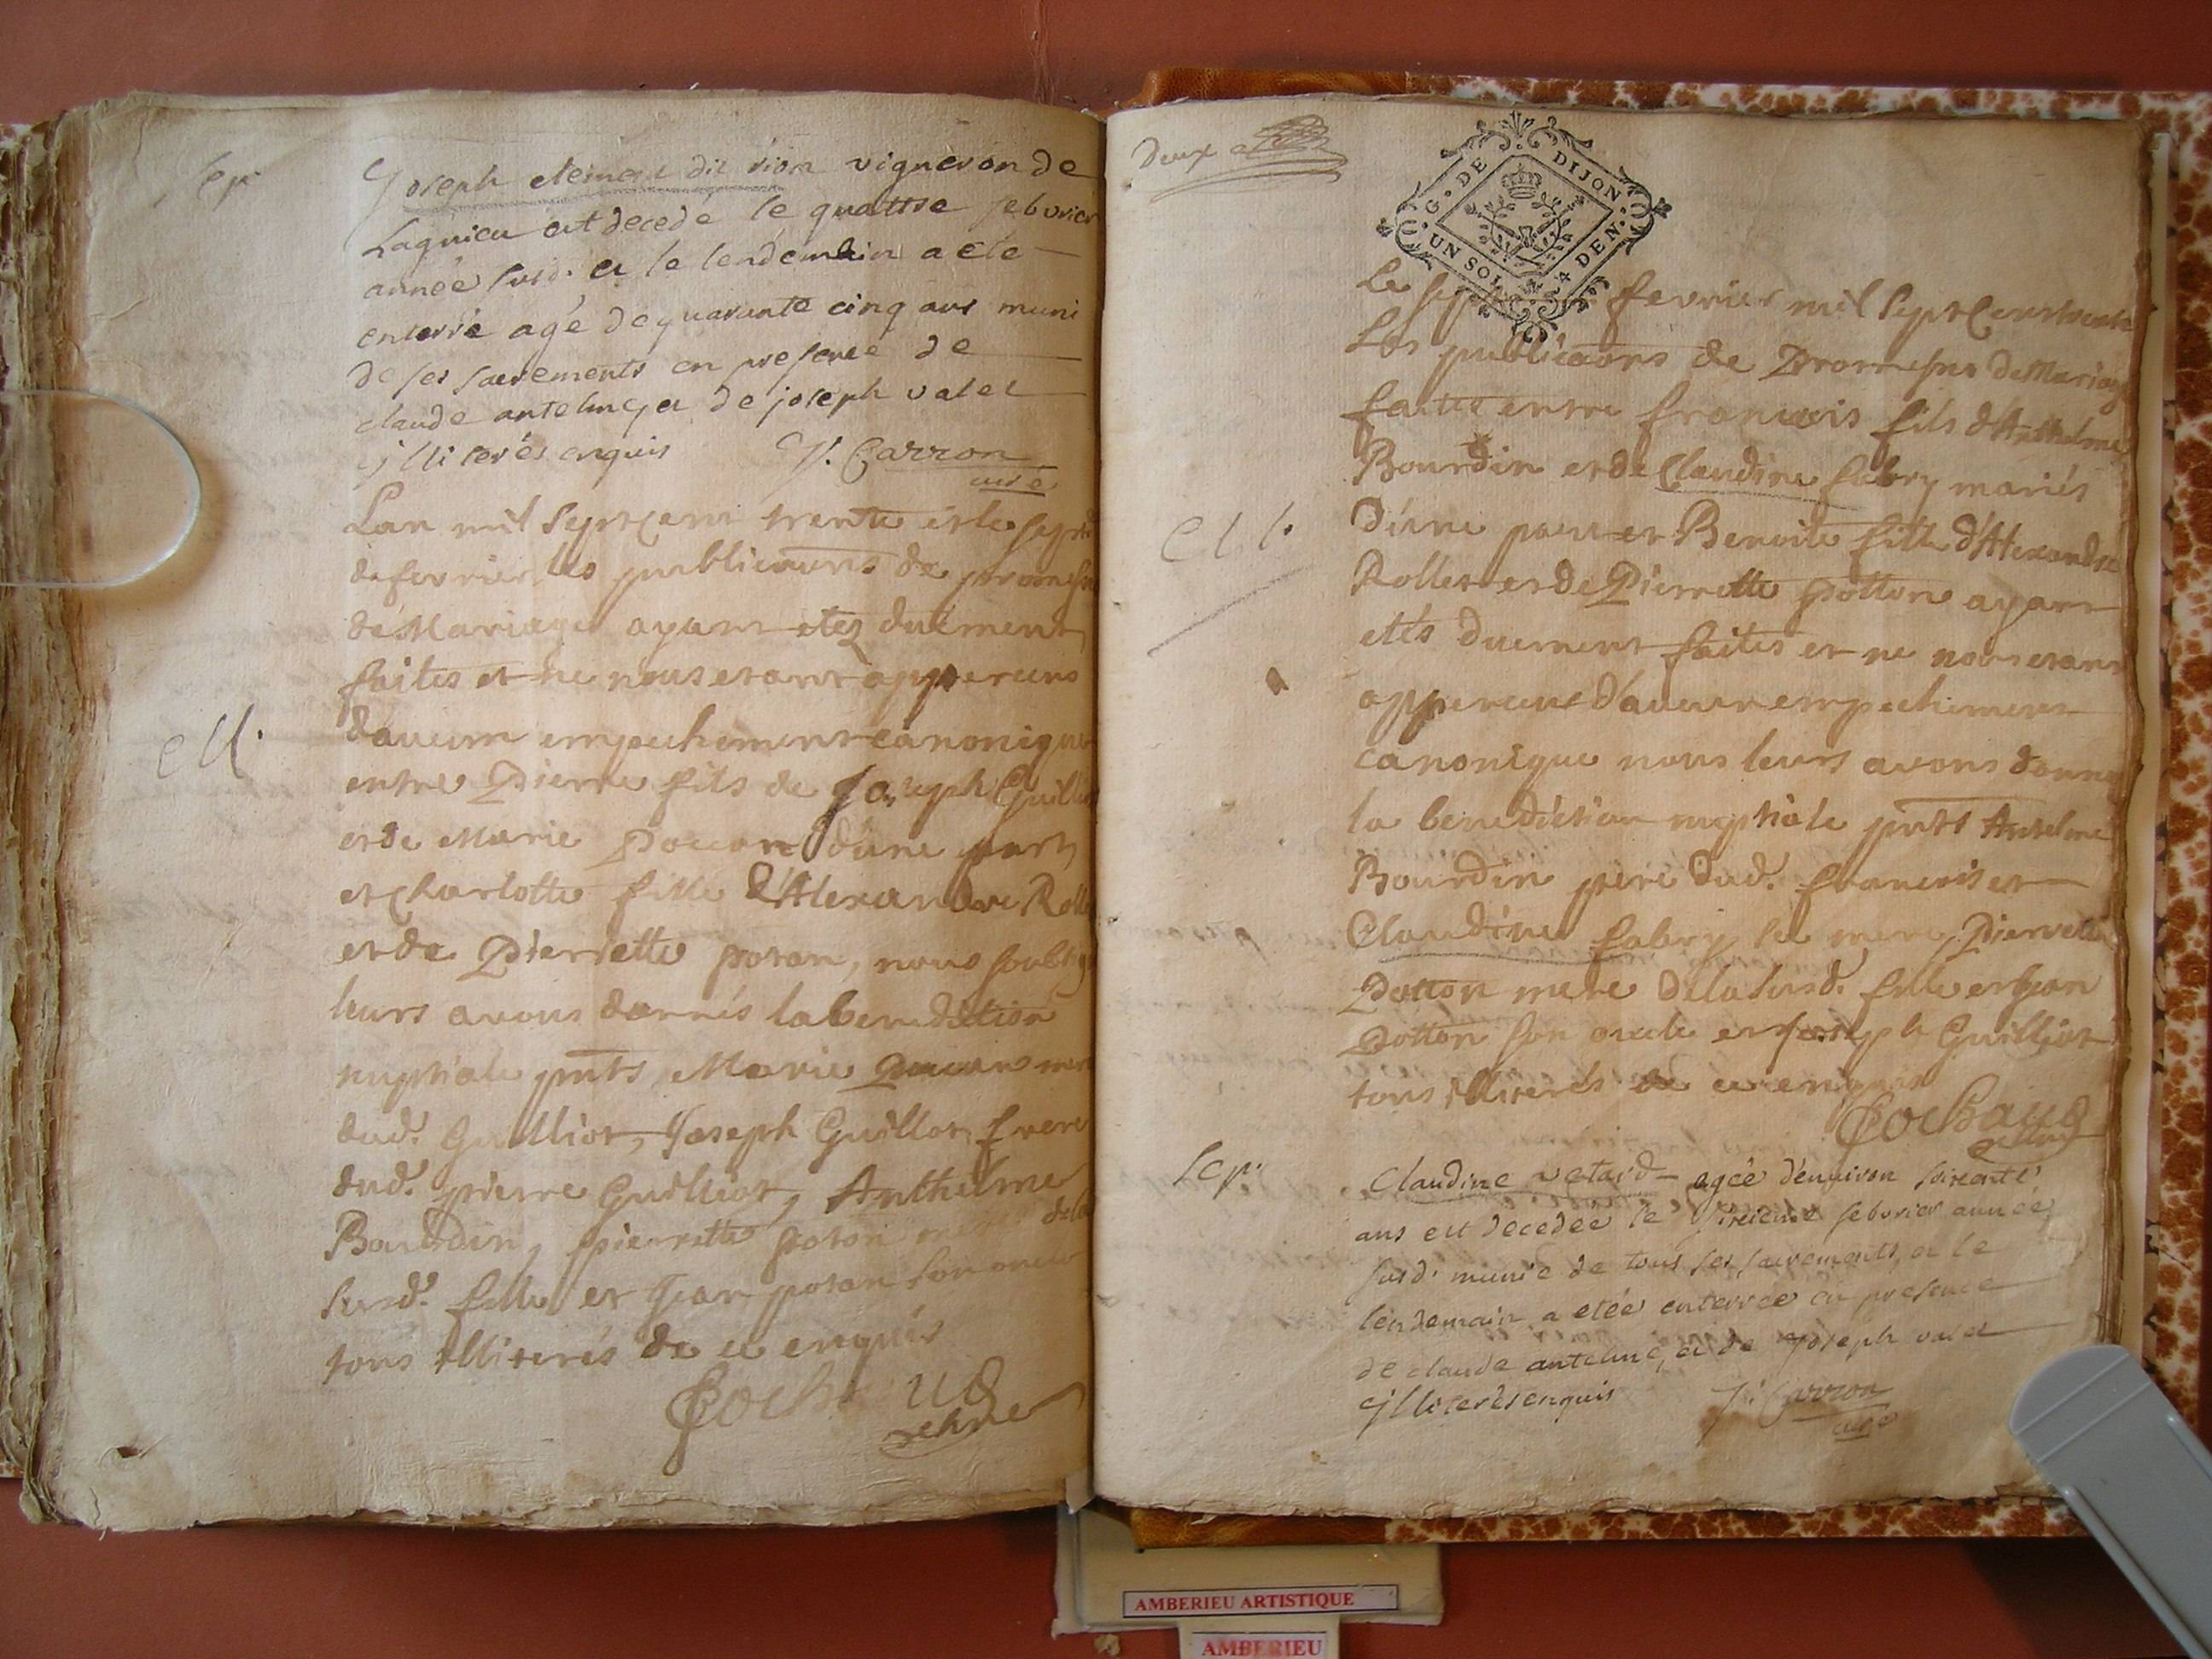 Sep.
Joseph clement dit rion vigneron de
Lagnieu est decedé le quattre febvrier
année susd. et le lendemain a eté
enterré agé de quarante cinq ans muni
de ses sacrements en presence de
claude antelme, et de joseph valet
illiterés enquis J. Carron
curé
Lan mil Sept Cent trente et le sept
de fevrier les publications de promesse
de Mariage ayant etez duëment
faites et ne nous etant apperceus
d'aucun empechement canonique
Ml.
entre Pierre fils de Joseph Guilliot
et de Marie d'une part
et Charlotte fille d'Alexandre Rollet
et de Pierrette poton, nous soubsig
leurs avons donnés la benediction
nuptiale pnts Marie mere
dud. Guilliot, Joseph Guilliot frere
dud. pierre Guilliot, Anthelme
Bourdin, pierrette poton mere de la
susd. fille et Jean poton son oncle
tous illiterés de ce enquis
Cochaud
Deux
G. DE DIJON
UN SOL 4 DEN.
Le sept fevrier mil Sept Cent trente
Les publicaons de Promesses de Mariage
faites entre francois fils d'Anthelme
Bourdin et de Claudine fabry mariés
Ml.
d'une part et Benoite fille d'Alexandre
Rollet et de Pierrette potton ayant
etés duement faites et ne nous etant
apperceus d'aucun empechement
canonique nous leurs avons donné
la benediction nuptiale pnts Antelme
Bourdin pere dud. francois et
Claudine fabry sa mere, Pierrette
Potton mere de la susd. fille et Jean
Potton son oncle et Joseph Guilliot
tous illiterés de ce enquis
Cochaud
Sep.
Claudine vetard agée d'environ soixante
ans est decedée le febvrier année
susd. munie de tous ses sacrements, et le
lendemain a etée enterrée en presence
de claude antelme, et de Joseph valet
illiterés enquis J. Carron
curé
AMBERIEU ARTISTIQUE
AMBERIEU